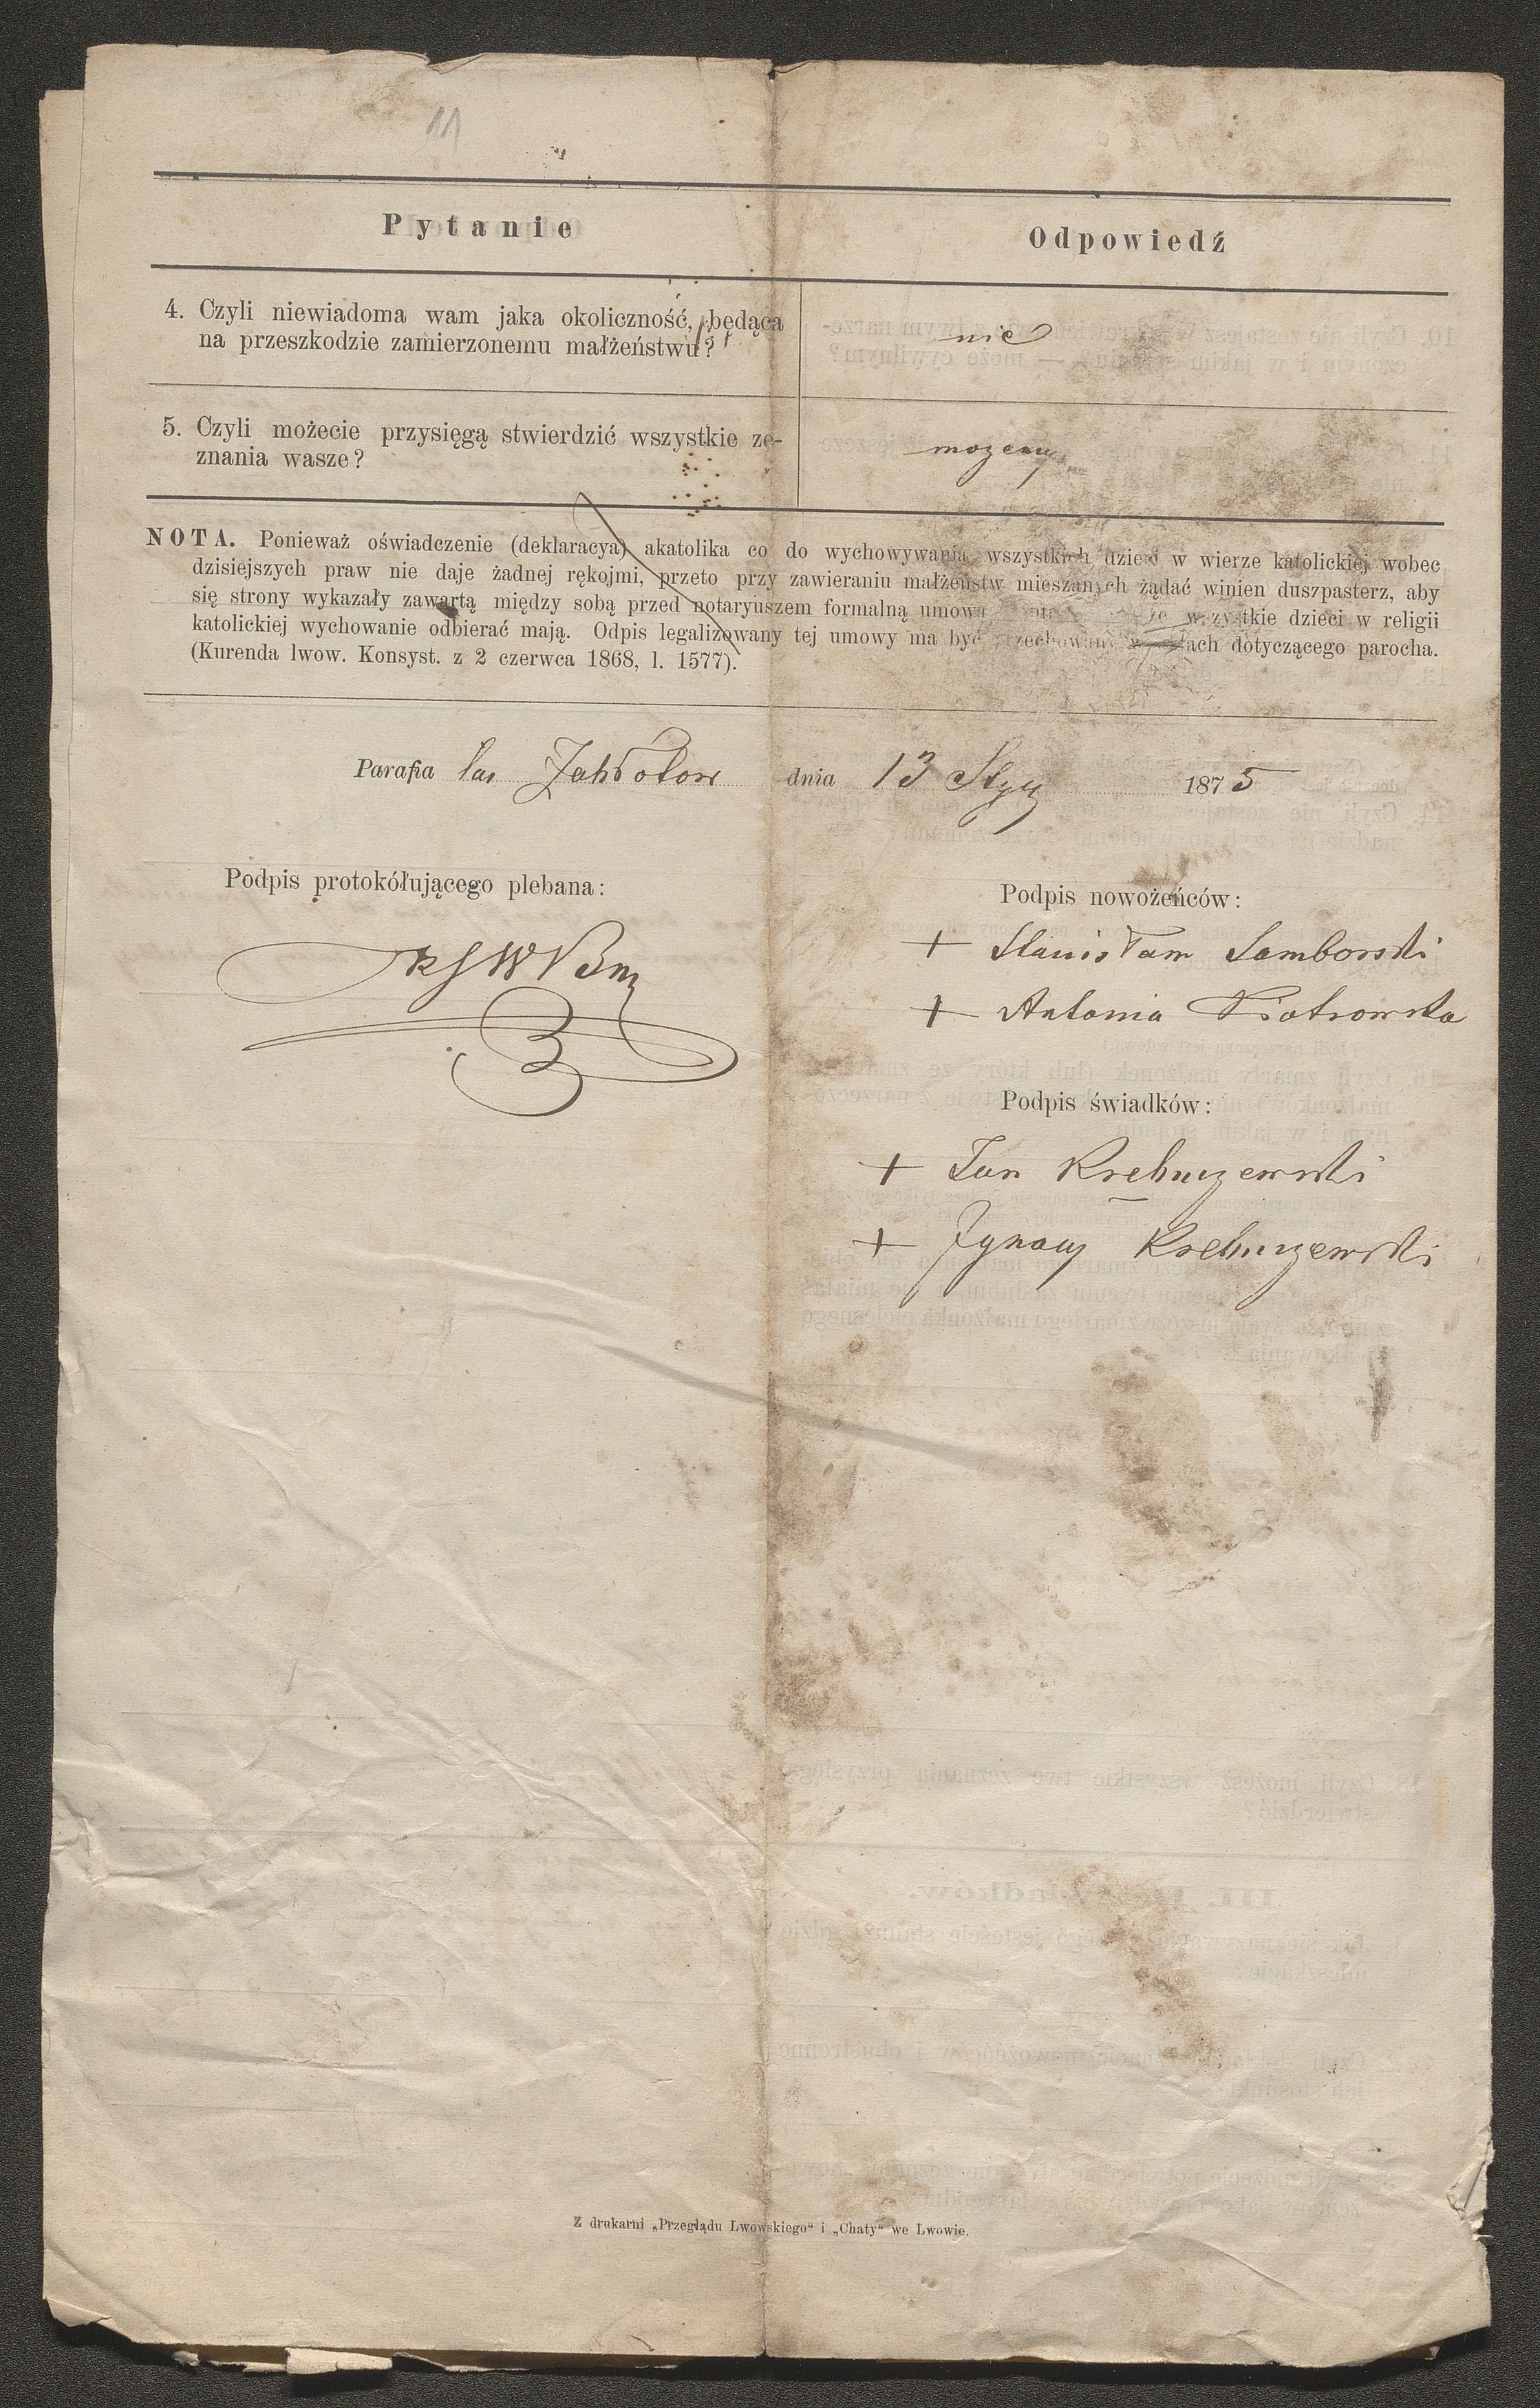 11
Pytanie
Odpowiedź
4. Czyli niewiadoma wam jaka okoliczność, będąca
na przeszkodzie zamierzonemu małżeństwu?
nie
5. Czyli możecie przysięgą stwierdzić wszystkie ze-
znania wasze?
mozemy
NOTA. Ponieważ oświadczenie (deklaracya) akatolika co do wychowywania wszystkich dzieci w wierze katolickiej wobec
dzisiejszych praw nie daje żadnej rękojmi, przeto przy zawieraniu małżeństw mieszanych żądać winien duszpasterz, aby
się strony wykazały zawartą między sobą przed notaryuszem formalną umową że wszystkie dzieci w religii
katolickiej wychowanie odbierać mają. Odpis legalizowany tej umowy ma być przechowany w dotyczącego parocha.
(Kurenda lwow. Konsyst. z 2 czerwca 1868, l. 1577).
Parafia łac Zabłotow dnia 13 Stycz 1875
Podpis protokółującego plebana:
Podpis nowożeńców:
+ Stanisław Samborski
+ Antonia Piotrowska
Podpis świadków:
+ Jan
+ Ignacy
Z drukarni „Przeglądu Lwowskiego" i „Chaty" we Lwowie.